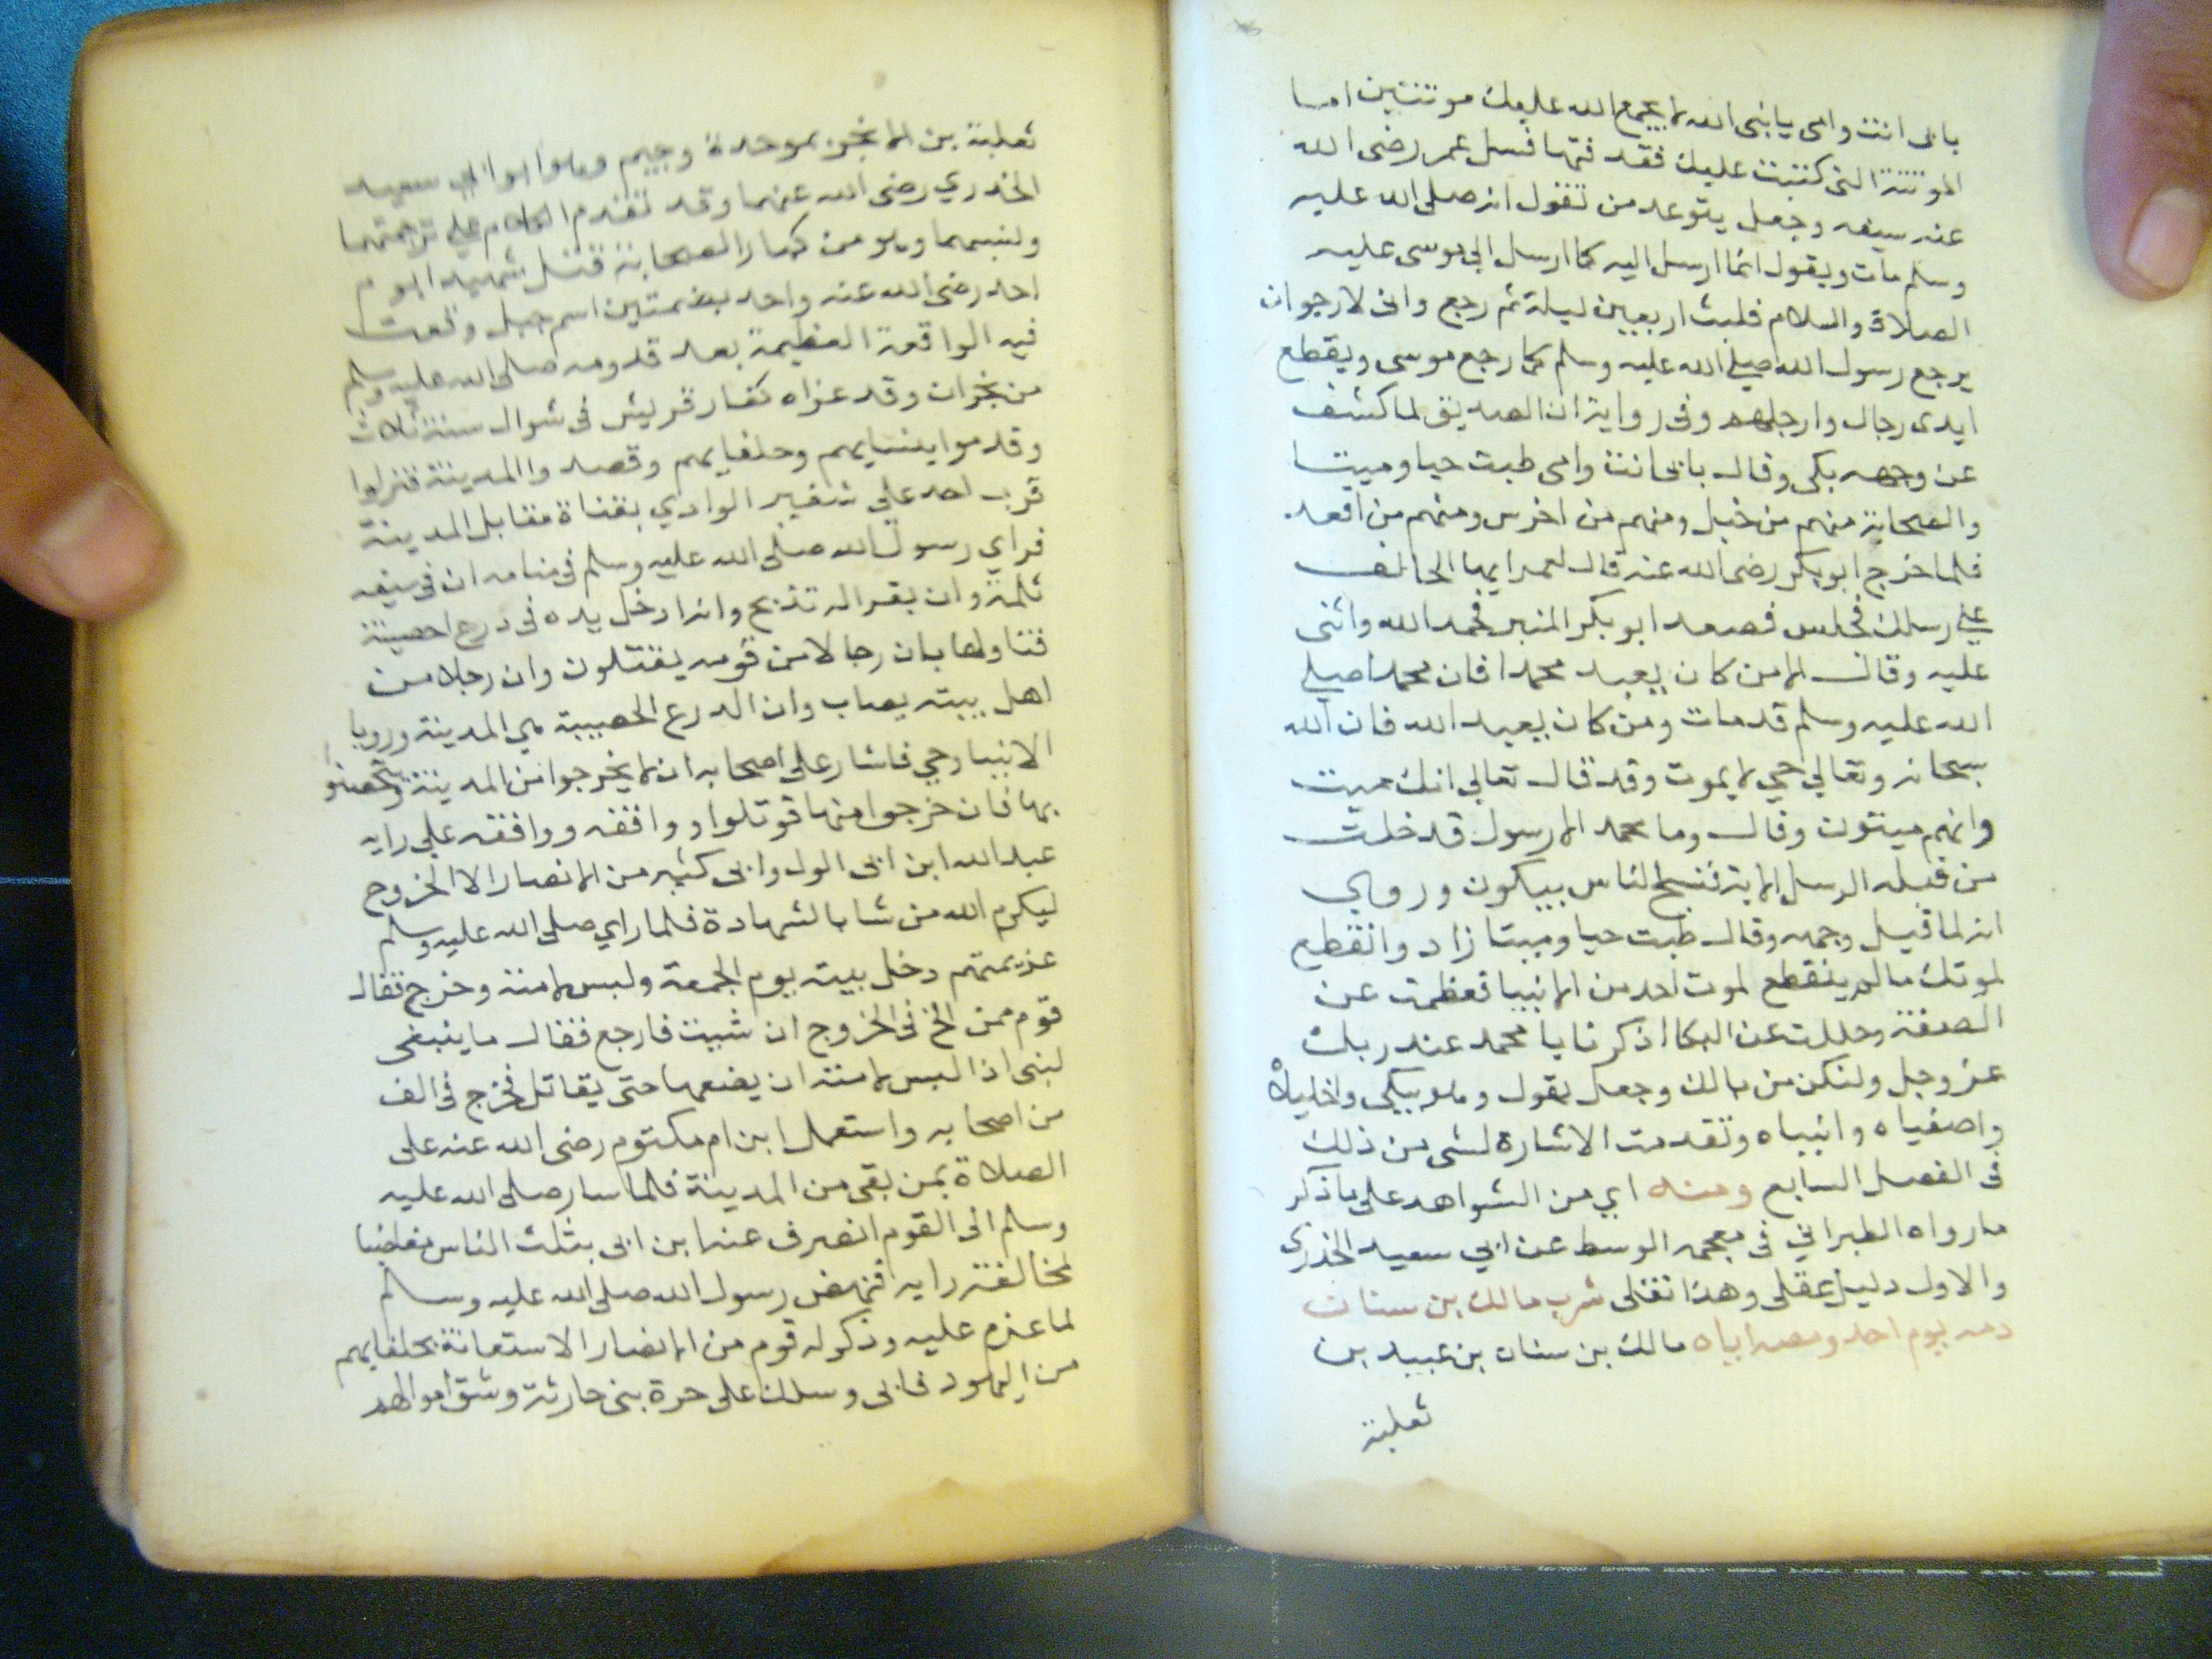 بابى انت وامى يا نبى الله لا يجمع الله عليك موتتين اما
الموتة التى كتبت عليك فقد فتها فسل عمر رضى الله
عنه سيفه وجعل يتوعد من تقول انه صلى الله عليه
وسلم مات ويقول انما ارسل اليه كما ارسل الى موسى عليه
الصلاة والسلام فلبث اربعين ليلة ثم رجع وانى لارجو ان
يرجع رسول الله صلى الله عليه وسلم كما رجع موسى ويقطع
ايدى رجال وارجلهم وفى رواية ان الصديق لما كشف
عن وجهه بكى وقال بابى انت وامى طبت حيا وميتا
والصحابة منهم من خبل ومنهم من اخرس ومنهم من اقعد
فلما خرج ابو بكر رضى الله عنه قال لعمر ايها الحالف
على رسلك فجلس فصعد ابو بكر المنبر فحمد الله واثنى
عليه وقال الا من كان يعبد محمدا فان محمدا صلى
الله عليه وسلم قد مات ومن كان يعبد الله فان الله
سبحانه وتعالى حي لا يموت وقد قال تعالى انك ميت
وانهم ميتون وقال وما محمد الا رسول قد خلت
من قبله الرسل الاية فنشج الناس يبكون وروي
انه لما قبل وجهه وقال طبت حيا وميتا زاد وانقطع
لموتك ما لم ينقطع لموت احد من الانبيا فعظمت عن
الصفة وجللت عن البكا اذكرنا يا محمد عند ربك
عز وجل ولنكن من بالك وجعل يقول وهو يبكى واخليلاه
واصفياه وانبياه وتقدمت الاشارة لشى من ذلك
فى الفصل السابع ومنه اي من الشواهد على ما ذكر
ما رواه الطبراني فى معجمه الوسط عن ابي سعيد الخدرى
والاول دليل عقلى وهذا نقلى شرب مالك بن سنان
دمه يوم احد ومصه اياه مالك بن سنان بن عبيد بن
ثعلبة
ثعلبة بن الابجر بموحدة وجيم وهو ابو ابي سعيد
الخدري رضى الله عنهما وقد تقدم الكلام على ترجمتهما
ونسبهما وهو من كبار الصحابة قتل شهيدا يوم
احد رضى الله عنه واحد بضمتين اسم جبل وقعت
فيه الواقعة العظيمة بعد قدومه صلى الله عليه وسلم
من نجران وقد غزاه كفار قريش فى شوال سنة ثلاث
وقدموا بنسايهم وحلفايهم وقصدوا المدينة فنزلوا
قرب احد على شفير الوادي بقناة مقابل المدينة
فراي رسول الله صلى الله عليه وسلم فى منامه ان فى سيفه
ثلمة وان بقرا له تذبح وانه ادخل يده فى درع حصينة
فتاولها بان رجالا من قومه يقتلون وان رجلا من
اهل بيته يصاب وان الدرع الحصينة هي المدينة ورويا
الانبيا وحي فاشار على اصحابه ان لا يخرجوا من المدينة ويتحصنوا
بها فان خرجوا منها قوتلوا ووافقه ووافقه على رايه
عبد الله ابن ابى الول وابى كثير من الانصار الا الخروج
ليكرم الله من شا بالشهادة فلما راي صلى الله عليه وسلم
عزيمتهم دخل بيته يوم الجمعة ولبس لامته وخرج فقال
قوم ممن الح فى الخروج ان شيت فارجع فقال ما ينبغى
لنبى اذا لبس لامته ان يضعها حتى يقاتل فخرج فى الف
من اصحابه واستعمل ابن ام مكتوم رضى الله عنه على
الصلاة بمن بقى من المدينة فلما سار صلى الله عليه
وسلم الى القوم انصرف عنه ابن ابى بثلث الناس مغاضبا
لمخالفة رايه فنهض رسول الله صلى الله عليه وسلم
لما عزم عليه وذكر له قوم من الانصار الاستعانة بحلفايهم
من اليهود فابى وسلك على حرة بنى حارثة وشق اموالهم